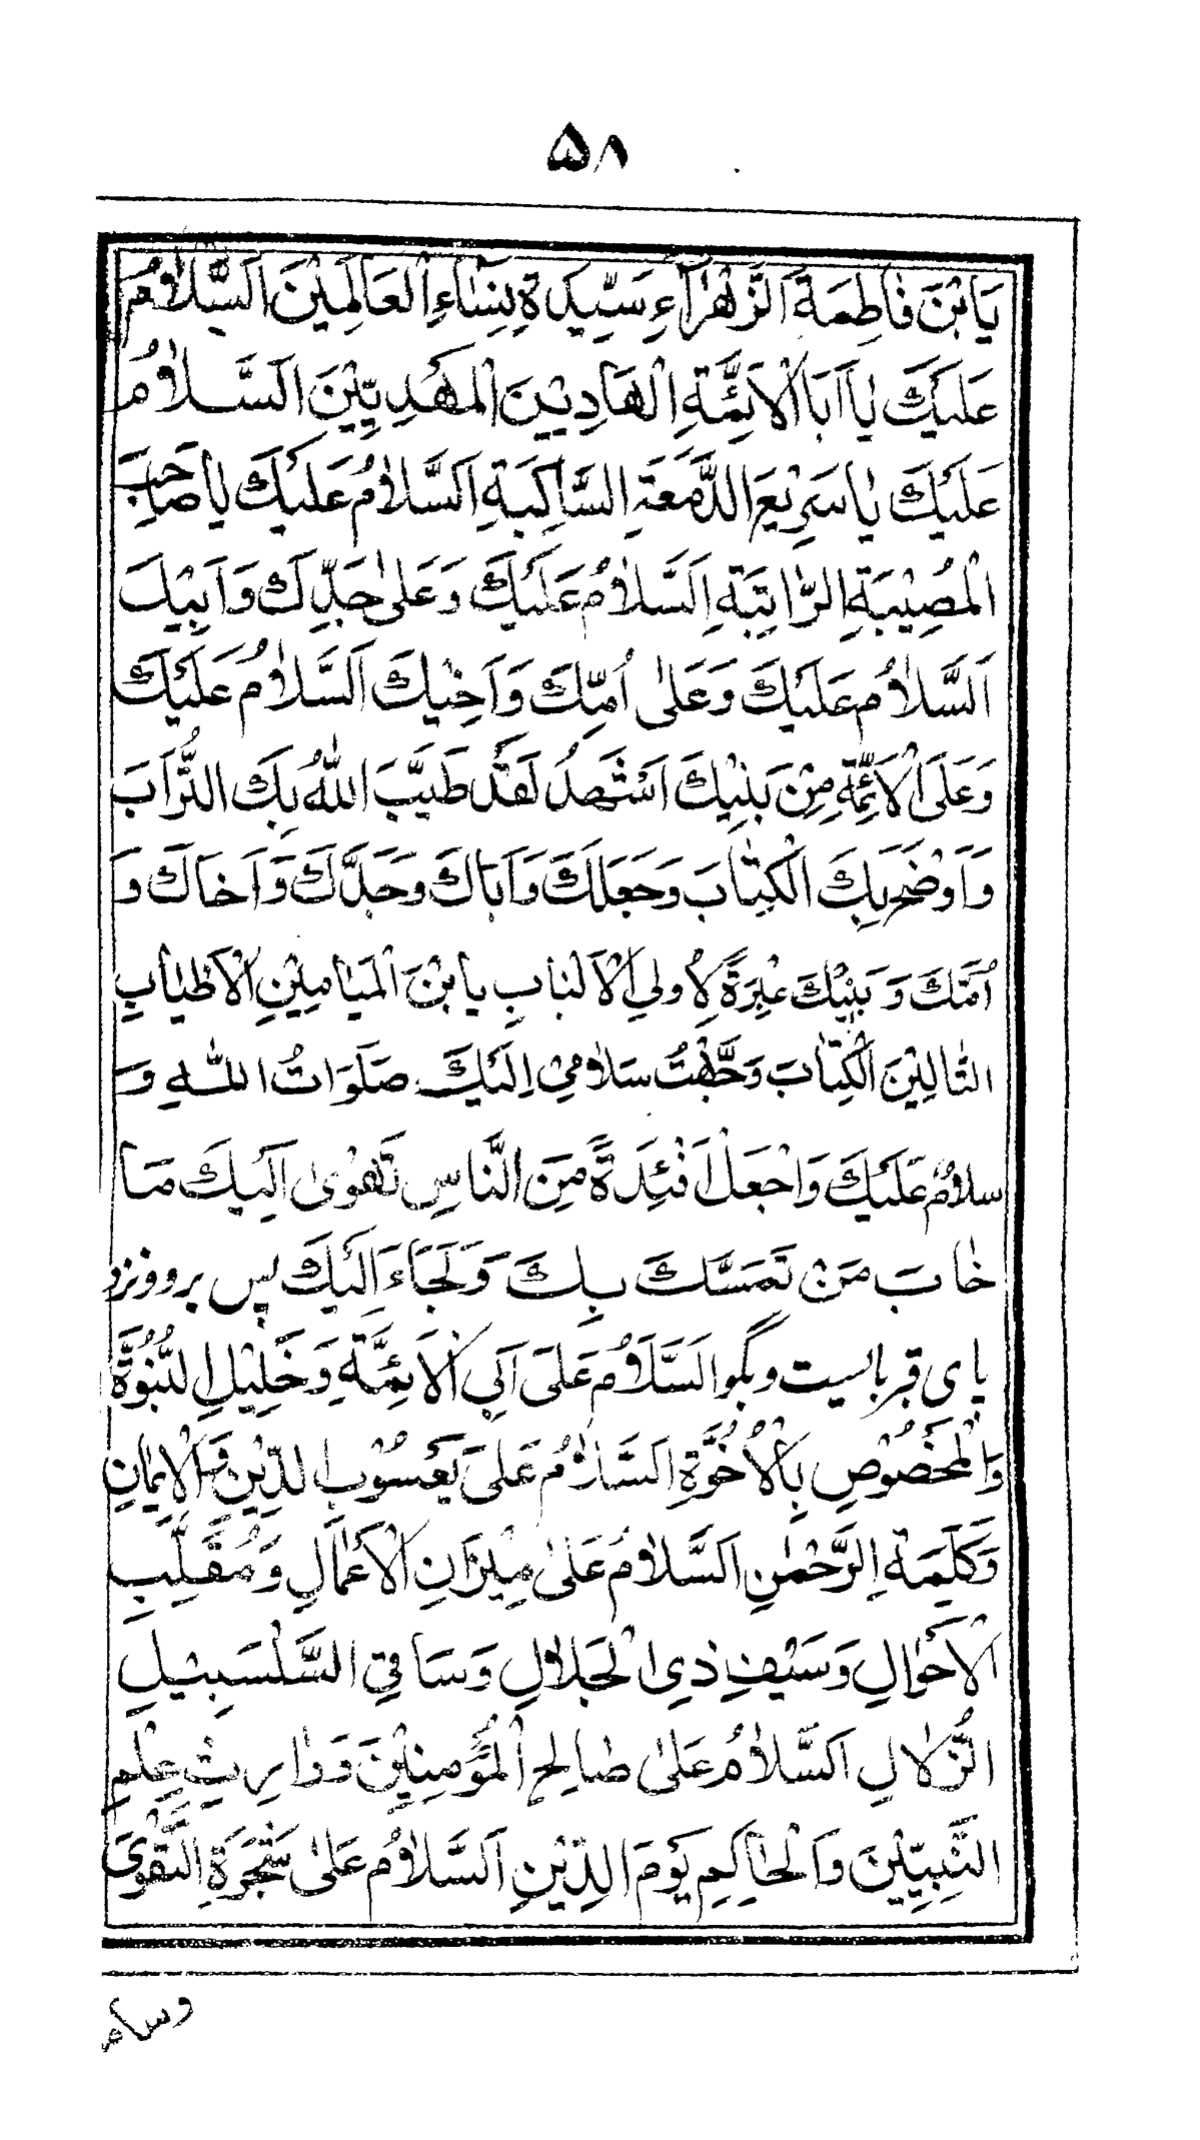 ۵۸
يَا بْنَ فَاطِمَةَ الزَّهْرَآءِ سَيِّدَةِ نِسَاءِ الْعَالَمِيْنَ اَلسَّلَامُ
عَلَيْكَ يَا اَبَا الْاَئِمَّةِ الْهَادِيِيْنَ الْمَهْدِيِّيْنَ اَلسَّلَامُ
عَلَيْكَ يَا سَرِيْعَ الدَّمْعَةِ السَّاكِبَةِ اَلسَّلَامُ عَلَيْكَ يَا صَاحِبَ
الْمُصِيْبَةِ الرَّاتِبَةِ اَلسَّلَامُ عَلَيْكَ وَعَلٰى جَدِّكَ وَاَبِيْكَ
اَلسَّلَامُ عَلَيْكَ وَعَلٰى اُمِّكَ وَاَخِيْكَ اَلسَّلَامُ عَلَيْكَ
وَعَلَى الْاَئِمَّةِ مِنْ بَنِيْكَ اَشْهَدُ لَقَدْ طَيَّبَ اللّٰهُ بِكَ التُّرَابَ
وَاَوْضَحَ بِكَ الْكِتَابَ وَجَعَلَكَ وَاَبَاكَ وَجَدَّكَ وَاَخَاكَ وَ
اُمَّكَ وَبَنِيْكَ عِبْرَةً لِاُولِي الْاَلْبَابِ يَا بْنَ الْمَيَامِيْنِ الْاَطْيَابِ
التَّالِيْنَ الْكِتَابَ وَجَّهْتُ سَلَامِيْ اِلَيْكَ صَلَوَاتُ اللّٰهِ وَ
سَلَامُهُ عَلَيْكَ وَاجْعَلْ اَفْئِدَةً مِنَ النَّاسِ تَهْوِىْ اِلَيْكَ مَا
خَابَ مَنْ تَمَسَّكَ بِكَ وَلَجَاءَ اِلَيْكَ پس برو ونزد
پای قبر بایست وبگو اَلسَّلَامُ عَلٰى اَبِي الْاَئِمَّةِ وَخَلِيْلِ النُّبُوَّةِ
وَالْمَخْصُوْصِ بِالْاُخُوَّةِ اَلسَّلَامُ عَلٰى يَعْسُوْبِ الدِّيْنِ وَالْاِيْمَانِ
وَكَلِمَةِ الرَّحْمٰنِ اَلسَّلَامُ عَلٰى مِيْزَانِ الْاَعْمَالِ وَمُقَلِّبِ
الْاَحْوَالِ وَسَيْفِ ذِى الْجَلَالِ وَسَاقِي السَّلْسَبِيْلِ
الزُّلَالِ اَلسَّلَامُ عَلٰى صَالِحِ الْمُؤْمِنِيْنَ وَوَارِثِ عِلْمِ
النَّبِيِّيْنَ وَالْحَاكِمِ يَوْمَ الدِّيْنِ اَلسَّلَامُ عَلٰى شَجَرَةِ التَّقْوٰى